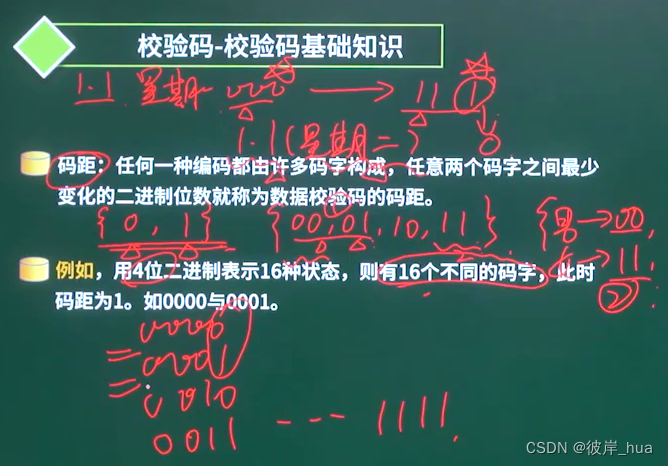 校验码-校验码基础知识
1.1 星期一 000 → 11 1
1.1(星期二) 0
码距：任何一种编码都由许多码字构成，任意两个码字之间最少
变化的二进制位数就称为数据校验码的码距。
{0, 1} {00,01,10,11} {男→00,
→11.
②
例如，用4位二进制表示16种状态，则有16个不同的码字，此时
码距为1。如0000与0001。
0000
0001
0010
0011 --- 1111.
CSDN @彼岸_hua